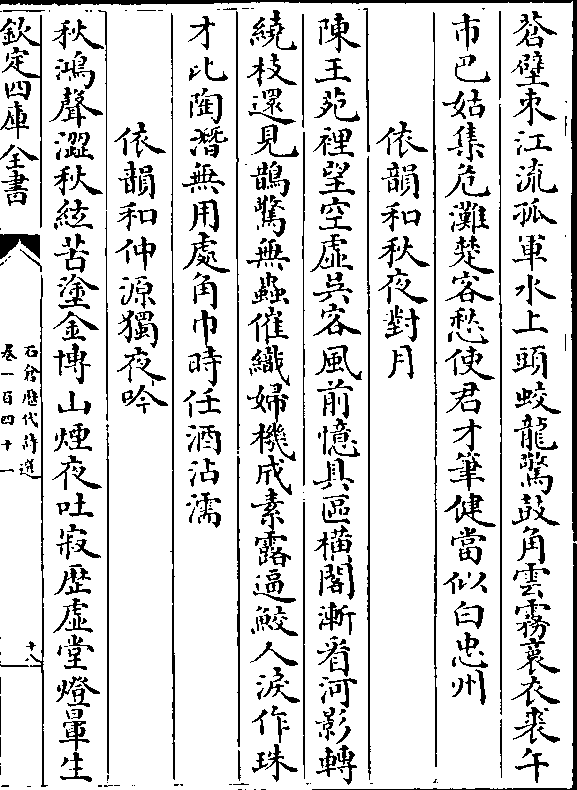 蒼壁束江流孤軍水上頭蛟龍驚鼓角雲霧裛衣裘午
市巴姑集危灘楚客愁使君才筆健當似白忠州
依韻和秋夜對月
陳王苑裡望空虛吳客風前憶具區橫閣漸看河影轉
繞枝還見鵲驚無蟲催織婦機成素露逼鮫人淚作珠
才比陶潛無用處角巾時任酒沾濡
依韻和仲源獨夜吟
秋鴻聲澀秋絃苦塗金博山煙夜吐寂歷虛堂燈暈生
欽定四庫全書
石倉歷代詩選
卷一百四十一
十八